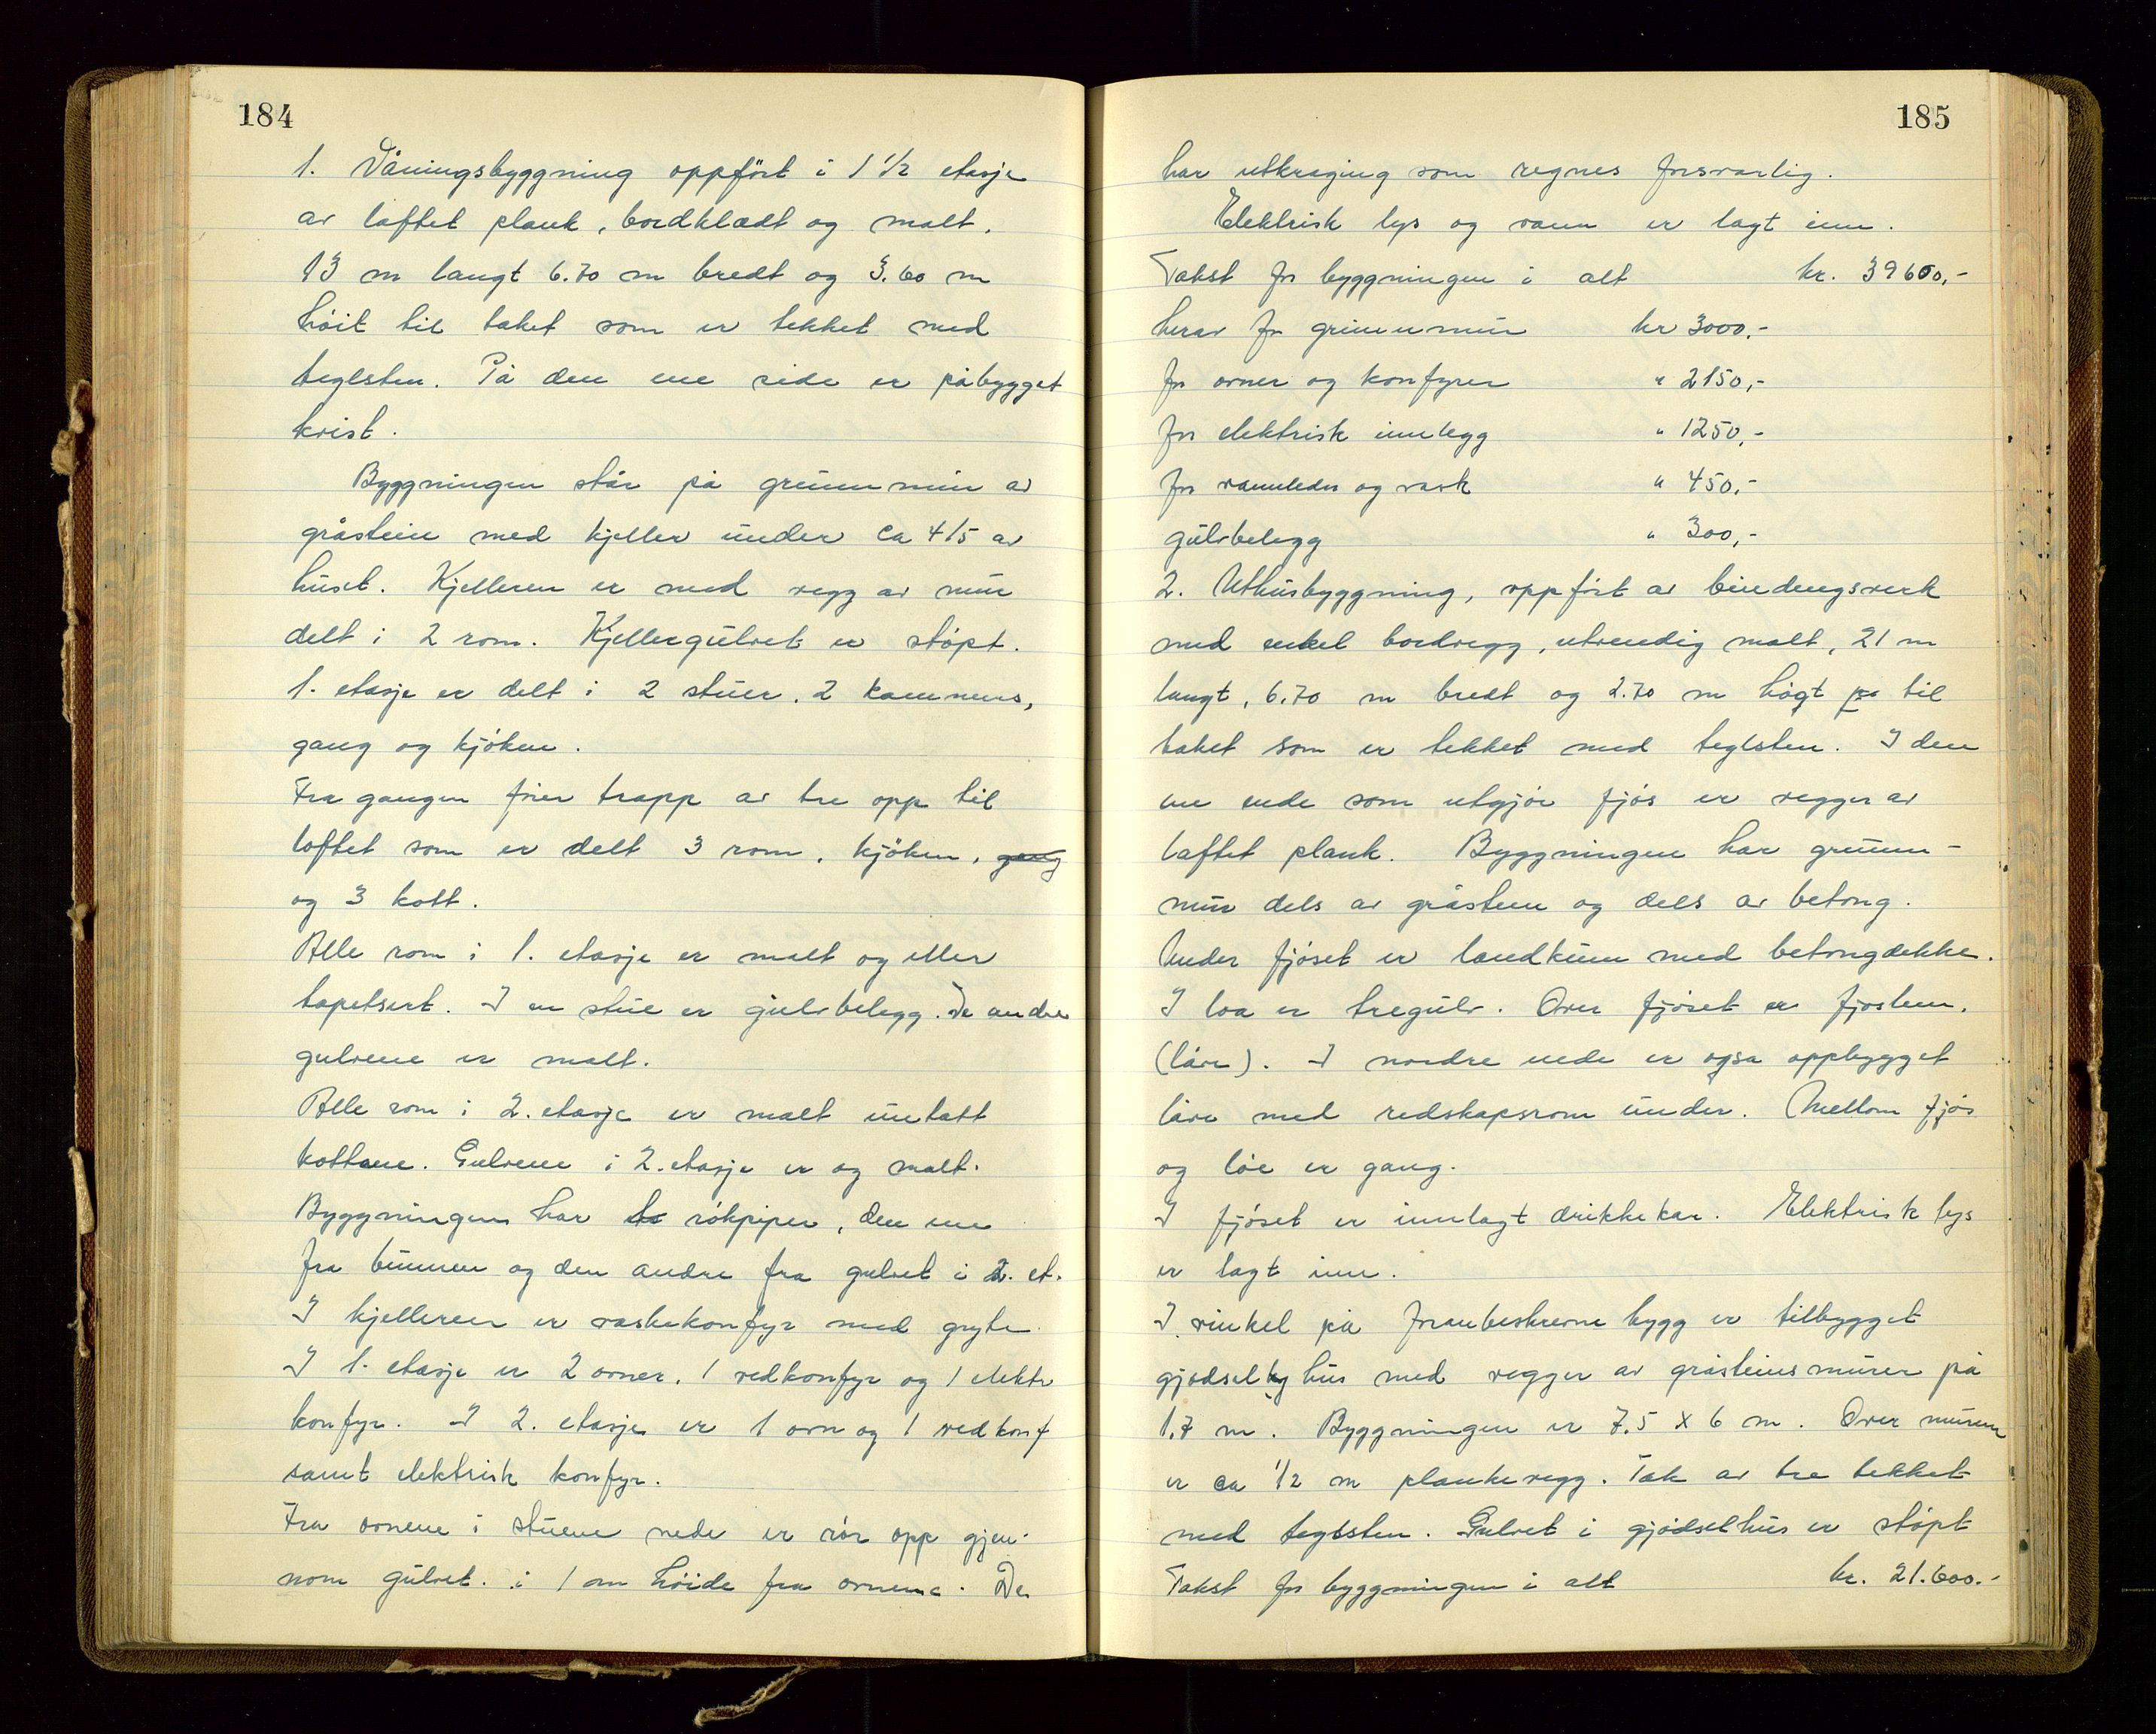 184
1. Våningsbyggning oppfört i 1 1/2 etasje
av laftet plank, bordklædt og malt.
13 m langt 6.70 m bredt og 3.60 m
höit til taket som er tekket med
teglsten. På den ene side er påbygget
krist.
Byggningen står på grunnmur av
gråstein med kjeller under ca 4/5 av
huset. Kjelleren er med vegg av mur
delt i 2 rom. Kjellergulvet er stöpt.
1. etasje er delt i 2 stuer, 2 kammers,
gang og kjöken.
Fra gangen förer trapp av tre opp til
loftet som er delt 3 rom, kjöken, gang
og 3 kott.
Alle rom i 1. etasje er malt og eller
tapetsert. I en stue er gulvbelegg. De andre
gulvene er malt.
Alle rom i 2. etasje er malt untatt
kottene. Gulvene i 2. etasje er og malt.
Byggningen har to rökpiper, den ene
fra bunnen og den andre fra gulvet i 2. et.
I kjelleren er vaskekonfyr med gryte.
I 1. etasje er 2 ovner, 1 vedkonfyr og 1 elektr
konfyr. I 2. etasje er 1 ovn og 1 vedkonf
samt elektrisk konfyr.
Fra ovnene i stuene nede er rör opp gjen-
nom gulvet. i 1 m höide fra ovnene. De
185
har utkraging som regnes forsvarlig.
Elektrisk lys og vann er lagt inn.
Takst for byggningen i alt kr. 39600,-
herav for grunnmur kr 3000.-
for ovner og konfyrer " 2150,-
for elektrisk innlegg " 1250,-
for vannleder og vask " 450,-
gulvbelegg " 300,-
2. Uthusbyggning, oppfört av bindingsverk
med enkel bordvegg, utvendig malt, 21 m
langt, 6.70 m bredt og 2.70 m högt pa til
taket som er tekket med teglsten. I den
ene ende som utgjör fjös er vegger av
laftet plank. Byggningen har grunn-
mur dels av gråsten og dels av betong.
Under fjöset er landkum med betongdekke.
I loa er tregulv. Over fjöset er fjostem.
(låve). I nordre ende er også oppbygget
låve med redskapsrom under. Mellom fjös
og löe er gang.
I fjöset er innlagt drikkekar. Elektrisk lys
er lagt inn.
I vinkel på foranbeskrevne bygg er tilbygget
gjödselhus med vegger av gråsteinsmurer på
1,7 m. Byggningen er 7.5 x 6 m. Over murene
er ca 1/2 m plankevegg. Tak av tre tekket
med teglsten. Gulvet i gjödselhus er stöpt
Takst for byggningen i alt kr. 21.600.-